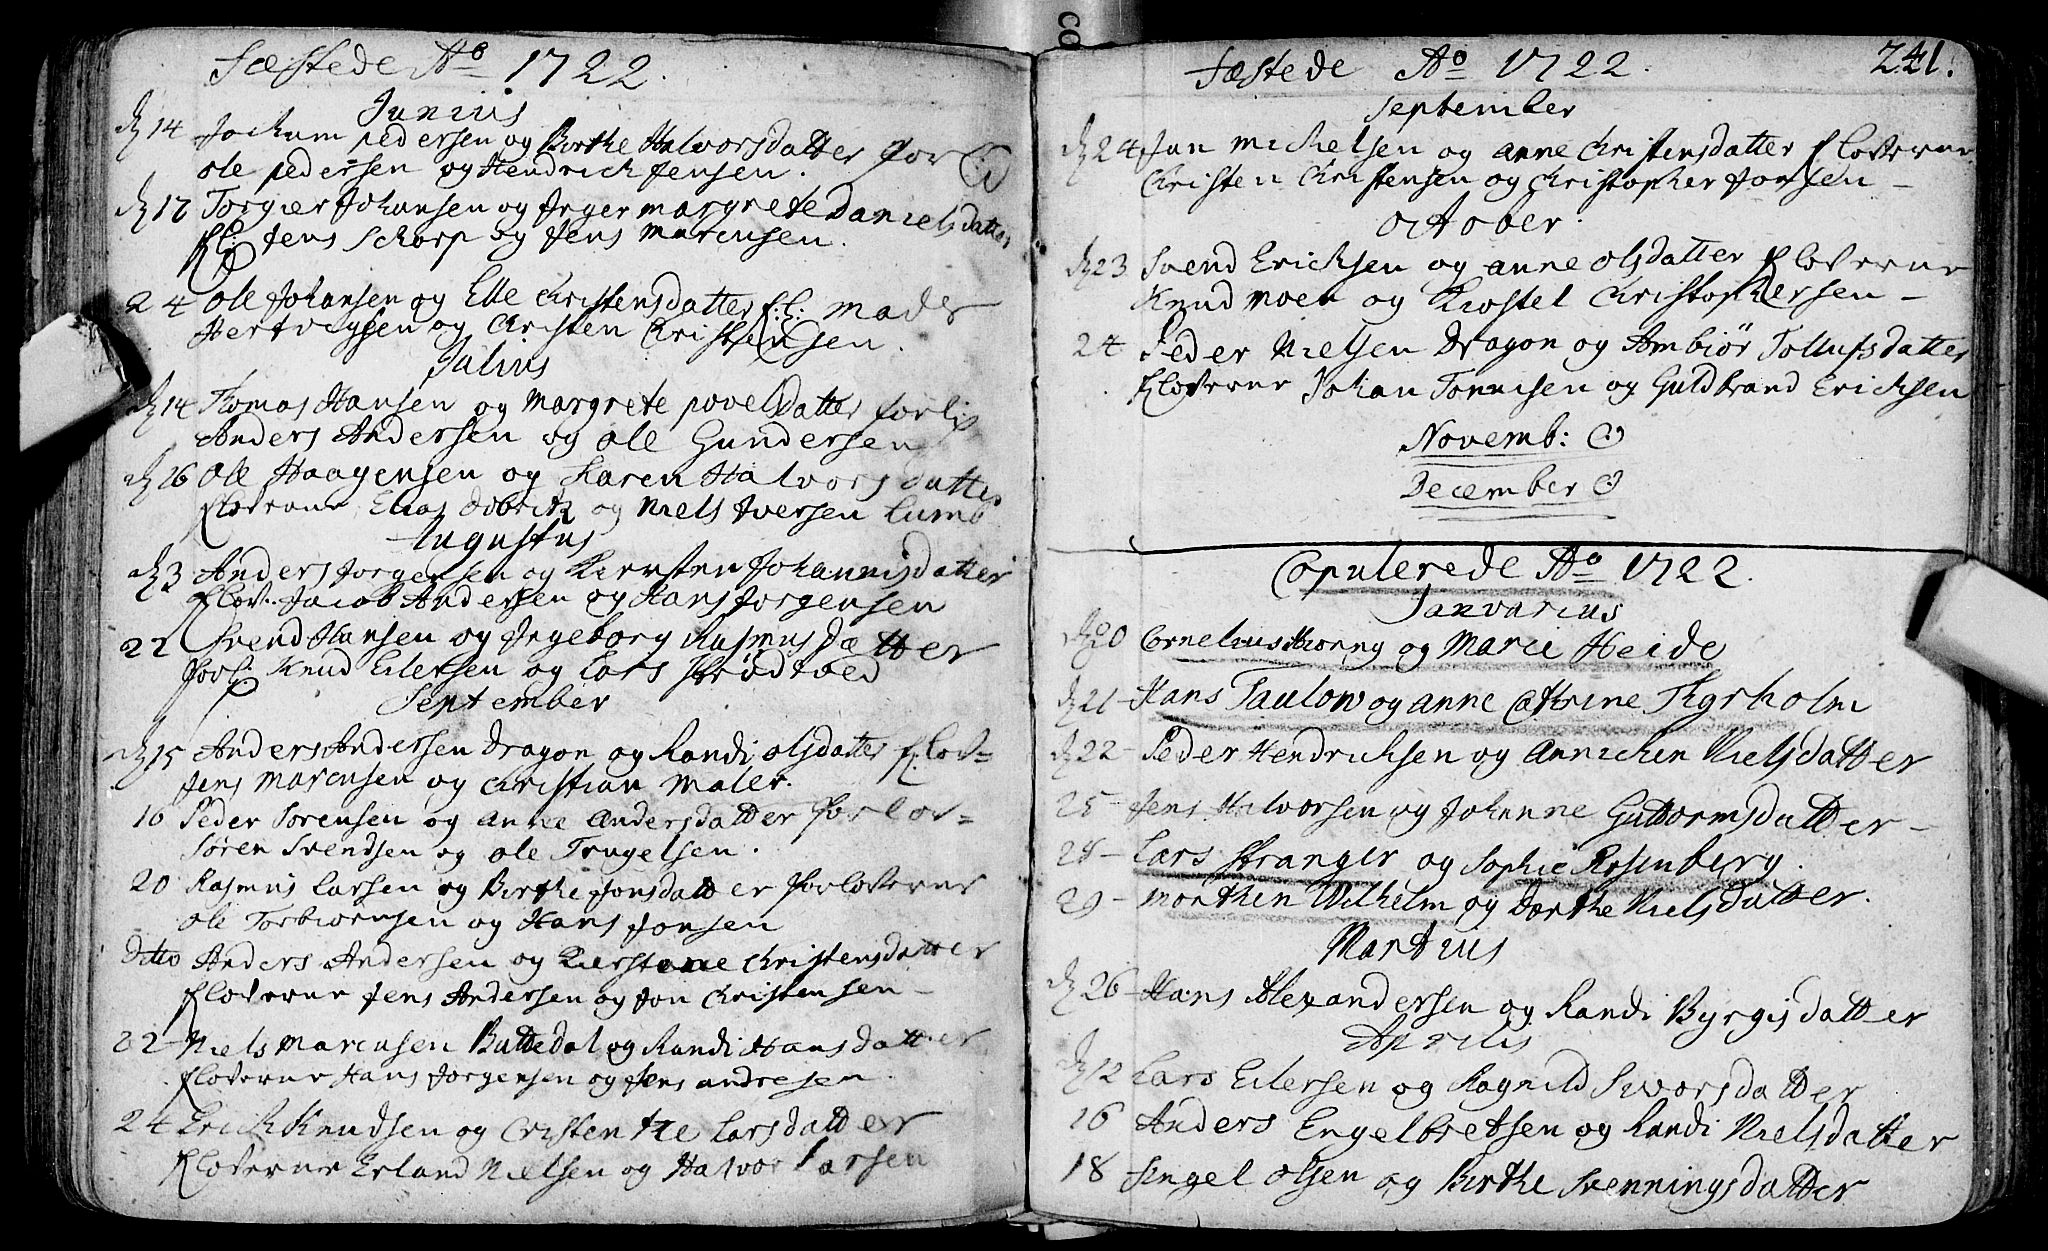 Fæstede Aō 1722.
Junius
d 14 Jochum pedersen og Birthe Halvorsdatter forl:
ole pedersen og Hendrich Jensen.
d 17 Torgier Johansen og Inger margrete Danielsdatter
fl: Jens Schorp og Jens Marcusen.
24 ole Johansen og Elle Christensdatter f.l: mads
Hertvigssen og Christen Christensen.
Julius
d 14 Thomas Hansen og Margrete povelsdatter forl
Anders Andersen og ole Gundersen
d 26 Ole Haagensen og Karen Halvorsdatter
floverne Elias og Niels Iversen Lumb
Augustus
d 3 Anders Jorgensen og Kiersten Johannisdatter
flov. Jacob Andersen og Hans Jorgensen
22 Svend Hansen og Ingeborg Rasmusdatter
forl Knud Eilersen og Lars Brødtved
September
d 15 Anders Andersen Dragon og Randi olsdatter flov-
Jens Marcusen og Christian Maler.
16 Peder Sørensen og Anne Andersdatter forlov-
Søren Svendsen og ole Trugelsen.
20 Rasmus Larsen og Birthe Jonsdatter forloverne
ole Torbiørnsen og Hans Jonsen
ditto Anders Andersen og Kierstene Christensdatter
floverne Jens Andersen og Jon Christensen -
22 - Niels Marcusen Buttedal og Randi Hansdatter
floverne Hans Jorgensen og Jens andresen.
24 Erich Knudsen og Cristenthe Larsdatter
floverne Erland Nielsen og Halvor Larsen
Fæstede Aō 1722. 241.
September
d 24 Jan Michelsen og anne Christensdatter floverne
Christen Christensen og Christopher Jonsen -
october.
d 23 Svend Ericksen og anne olsdatter floverne
Knud moen og Kiostel Christophersen -
24 Peder Nielsen Dragon og Ambiør Tollufsdatter
floverne Johan Tonnisen og Guldbrand Ericksen
Novemb:
December
Copulerede Aō 1722.
Janvarius
d 20 Cornelius og Marie Heide
d 21 - Hans Paulow og anne Cathrine Thyrholm
d 22 - Peder Hendricksen og Annichen Nielsdatter
25 - Jens Halvorsen og Johanne Guttormsdatter -
28 - Lars Stranger og Sophie Rosenberg.
29 - Morthen Wilhelm og Dorthe Nielsdatter.
Martius
d 26 - Hans Alexandersen og Randi Byrgisdatter
Aprilis
d 12 Lars Eilersen og Ragnild Siversdatter
16 Anders Engelbretsen og Randi Nielsdatter
18 Singel olsen og Birthe Svenningsdatter